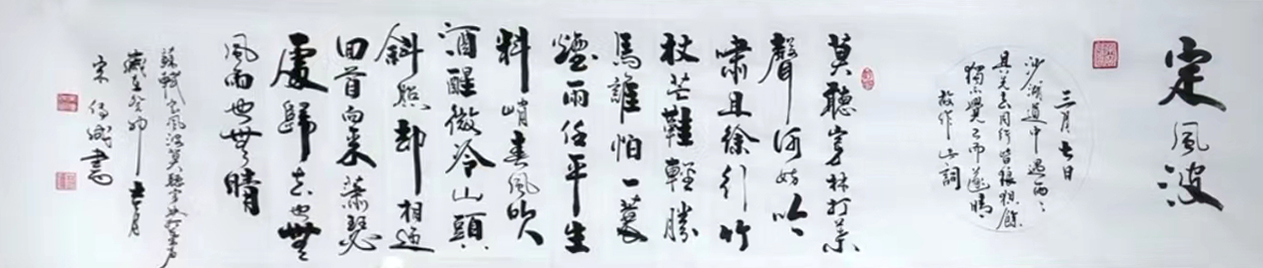 定風波
三月七日
沙湖道中遇雨雨
具先去同行皆狼狽余
獨不覺已而遂晴
故作此詞
莫聽穿林打葉
聲何妨吟
嘯且徐行竹
杖芒鞋輕勝
馬誰怕一蓑
煙雨任平生
料峭春風吹
酒醒微冷山頭
斜照却相迎
回首向來蕭瑟
處歸去也無
風雨也無晴
蘇軾定風波莫聽穿林打葉聲
歲在癸卯七月
宋
書